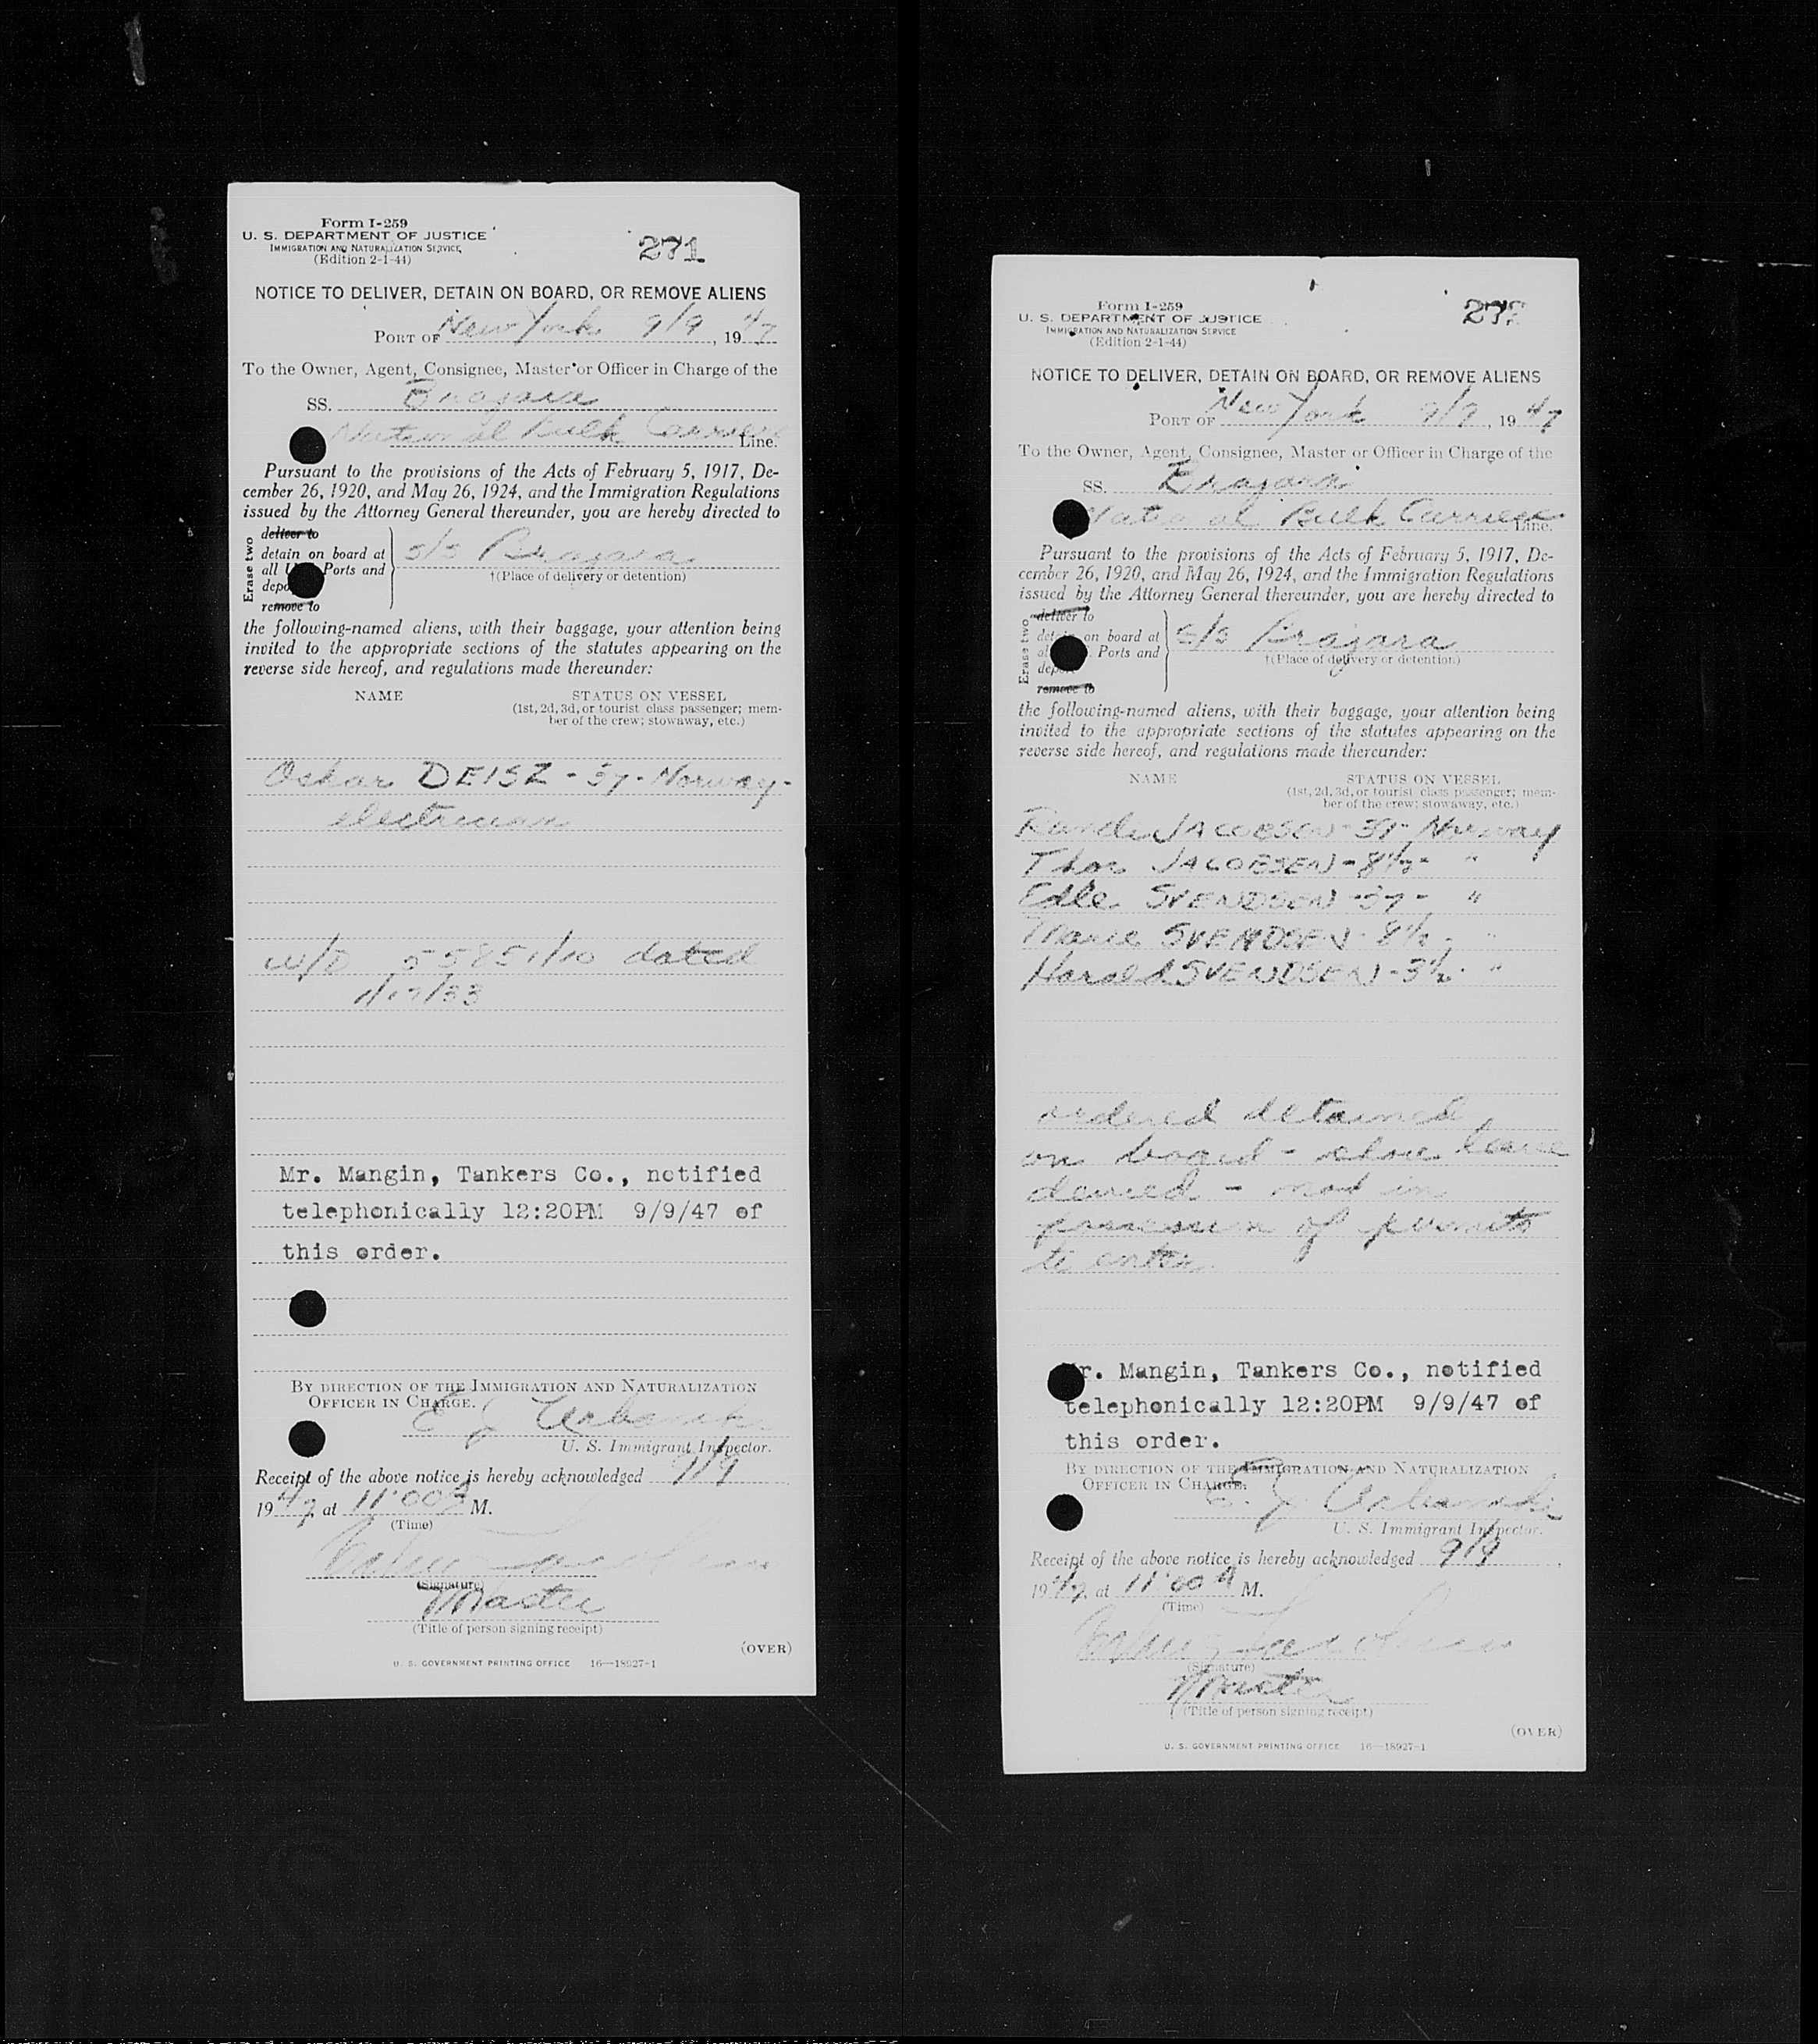 Form I-259
U. S. DEPARTMENT OF JUSTICE
IMMIGRATION AND NATURALIZATION SERVICE
(Edition 2-1-44)
271
NOTICE TO DELIVER, DETAIN ON BOARD, OR REMOVE ALIENS
PORT OF New York 9/9, 1947
To the Owner, Agent, Consignee, Master or Officer in Charge of the
SS. Brajara
National Bulk Carriers Line.
Pursuant to the provisions of the Acts of February 5, 1917, De-
cember 26, 1920, and May 26, 1924, and the Immigration Regulations
issued by the Attorney General thereunder, you are hereby directed to
Erase two
deliver to
detain on board at
all Ports and
remove to
s/s Brajara
†(Place of delivery or detention)
the following-named aliens, with their baggage, your attention being
invited to the appropriate sections of the statutes appearing on the
reverse side hereof, and regulations made thereunder:
NAME
STATUS ON VESSEL
(1st, 2d, 3d, or tourist class passenger; mem-
ber of the crew; stowaway, etc.)
Oskar DEISZ - 37 - Norway -
electrician
55851/10 dated
Mr. Mangin, Tankers Co., notified
telephonically 12:20PM 9/9/47 of
this order.
BY DIRECTION OF THE IMMIGRATION AND NATURALIZATION
OFFICER IN CHARGE.
E J Urbanski
U. S. Immigrant Inspector.
Receipt of the above notice is hereby acknowledged 9/9
1947, at 11:00 A M.
(Time)
(Signature)
Master
(Title of person signing receipt)
(OVER)
U. S. GOVERNMENT PRINTING OFFICE 16—18927-1
Form I-259
U. S. DEPARTMENT OF JUSTICE
IMMIGRATION AND NATURALIZATION SERVICE
(Edition 2-1-44)
NOTICE TO DELIVER, DETAIN ON BOARD, OR REMOVE ALIENS
PORT OF New York 9/9, 1947
To the Owner, Agent, Consignee, Master or Officer in Charge of the
SS. Brajara
National Bulk Carriers Line.
Pursuant to the provisions of the Acts of February 5, 1917, De-
cember 26, 1920, and May 26, 1924, and the Immigration Regulations
issued by the Attorney General thereunder, you are hereby directed to
Erase two
deliver to
on board at
Ports and
remove to
S/S Brajara
†(Place of delivery or detention)
the following-named aliens, with their baggage, your attention being
invited to the appropriate sections of the statutes appearing on the
reverse side hereof, and regulations made thereunder:
NAME
STATUS ON VESSEL
(1st, 2d, 3d, or tourist class passenger; mem-
ber of the crew; stowaway, etc.)
JACOBSEN - Norway
Thor JACOBSEN - 8½ - "
Edle SVENDSEN - 37 - "
Marie SVENDSEN - 8½ - "
Harald SVENDSEN - 3½ - "
ordered detained
on board - shore leave
denied - not in
possession of permits
to enter.
Mr. Mangin, Tankers Co., notified
telephonically 12:20PM 9/9/47 of
this order.
BY DIRECTION OF THE IMMIGRATION AND NATURALIZATION
OFFICER IN CHARGE.
E. J. Urbanski
U. S. Immigrant Inspector.
Receipt of the above notice is hereby acknowledged 9/9
1947, at 11:00 A M.
(Time)
(Signature)
Master
(Title of person signing receipt)
(OVER)
U. S. GOVERNMENT PRINTING OFFICE 16—18927-1